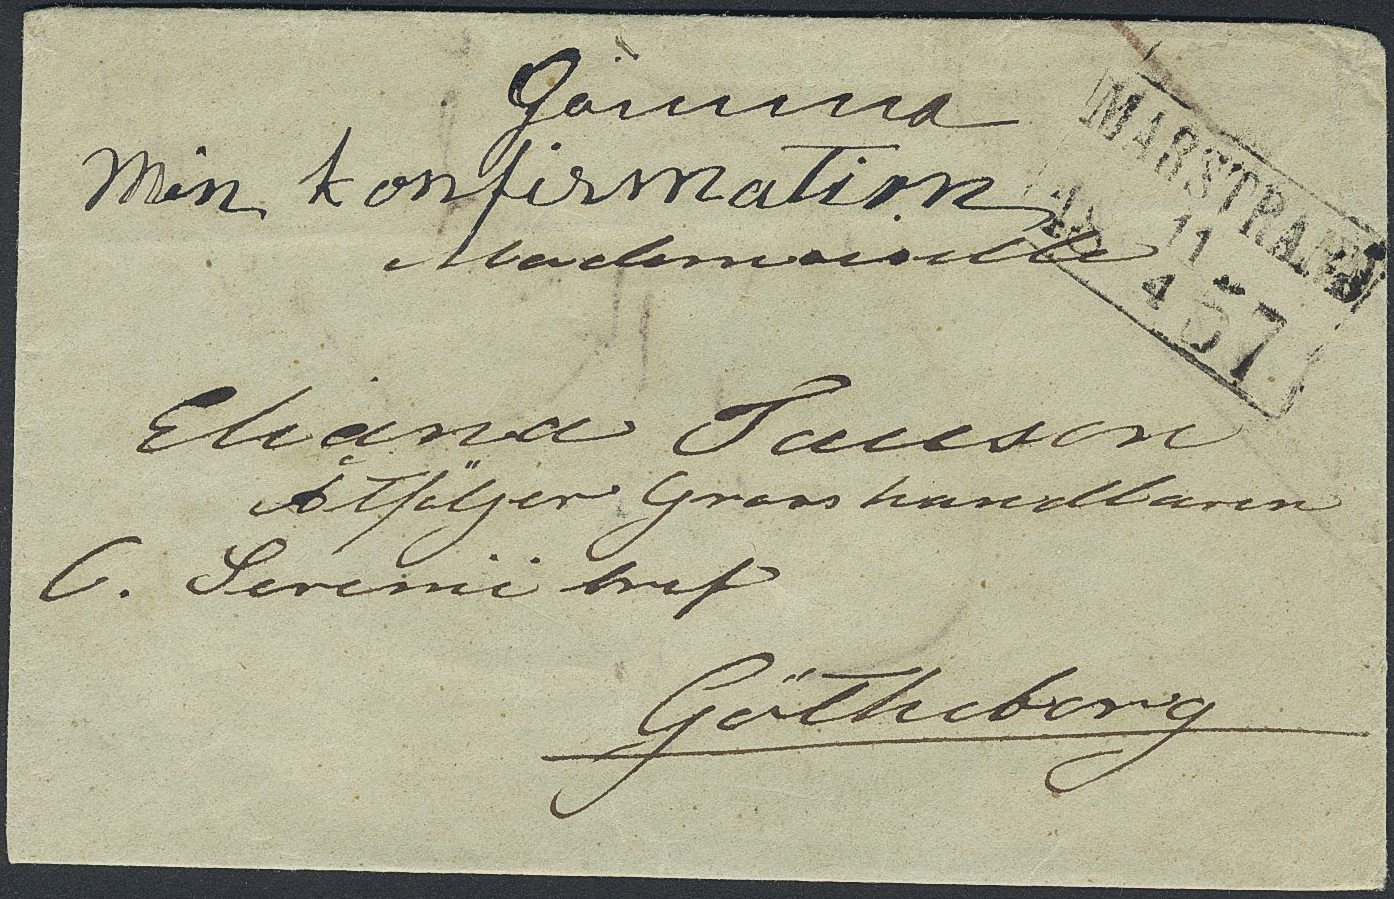 Gömma
Min konfirmation
Mademoiselle
MARSTRAND
11
4
57
Eliana
Åtföljer Grosshandlaren
C. bref
Götheborg